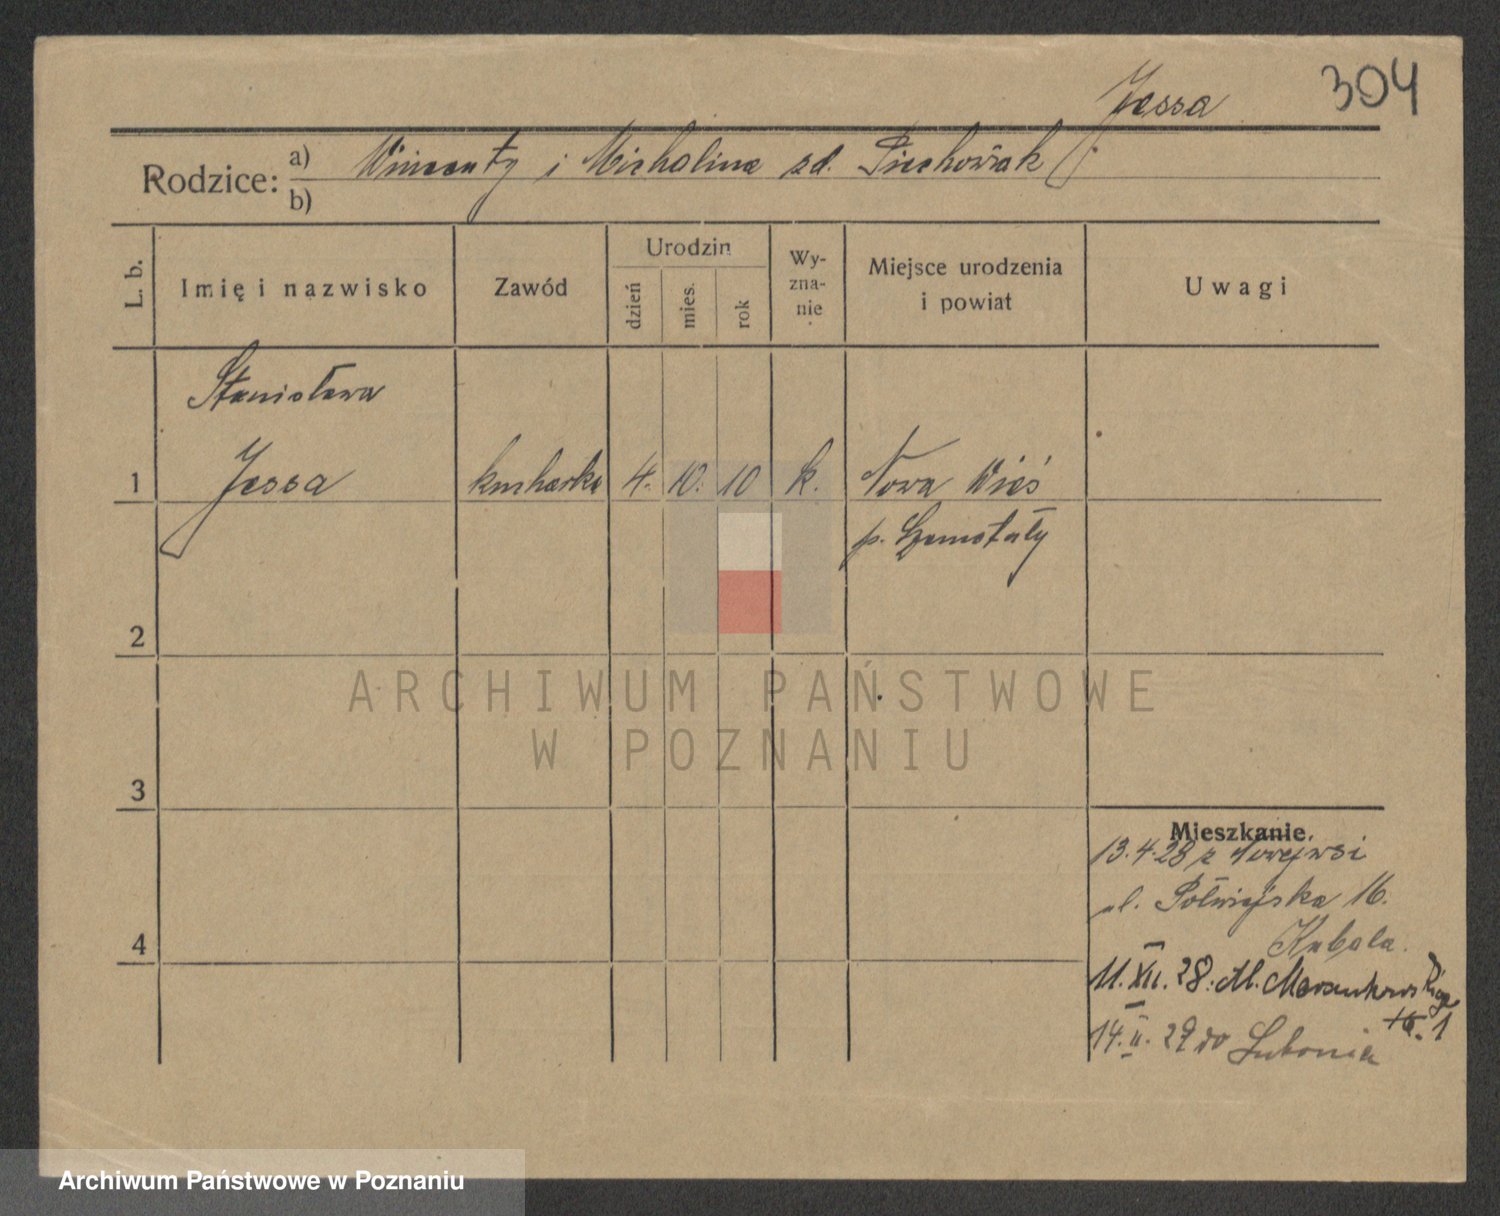 304
Jessa
Rodzice: a) Wincenty i Michalina zd. Piechowiak
b)
L. b. Imię i nazwisko Zawód Urodzin dzień mies. rok Wyznanie Miejsce urodzenia i powiat Uwagi
Stanisława
1 Jessa kucharka 4. 10. 10 k. Nowa Wieś
p. Szamotuły
2
ARCHIWUM PAŃSTWOWE
W POZNANIU
3
Mieszkanie.
13.4.28 z Nowejwsi
ul. Półwiejska 16.
4
Kubala.
11. XII. 28. Al. Marcinkowskiego
1
14. II. 29 do Lubonia
Archiwum Państwowe w Poznaniu